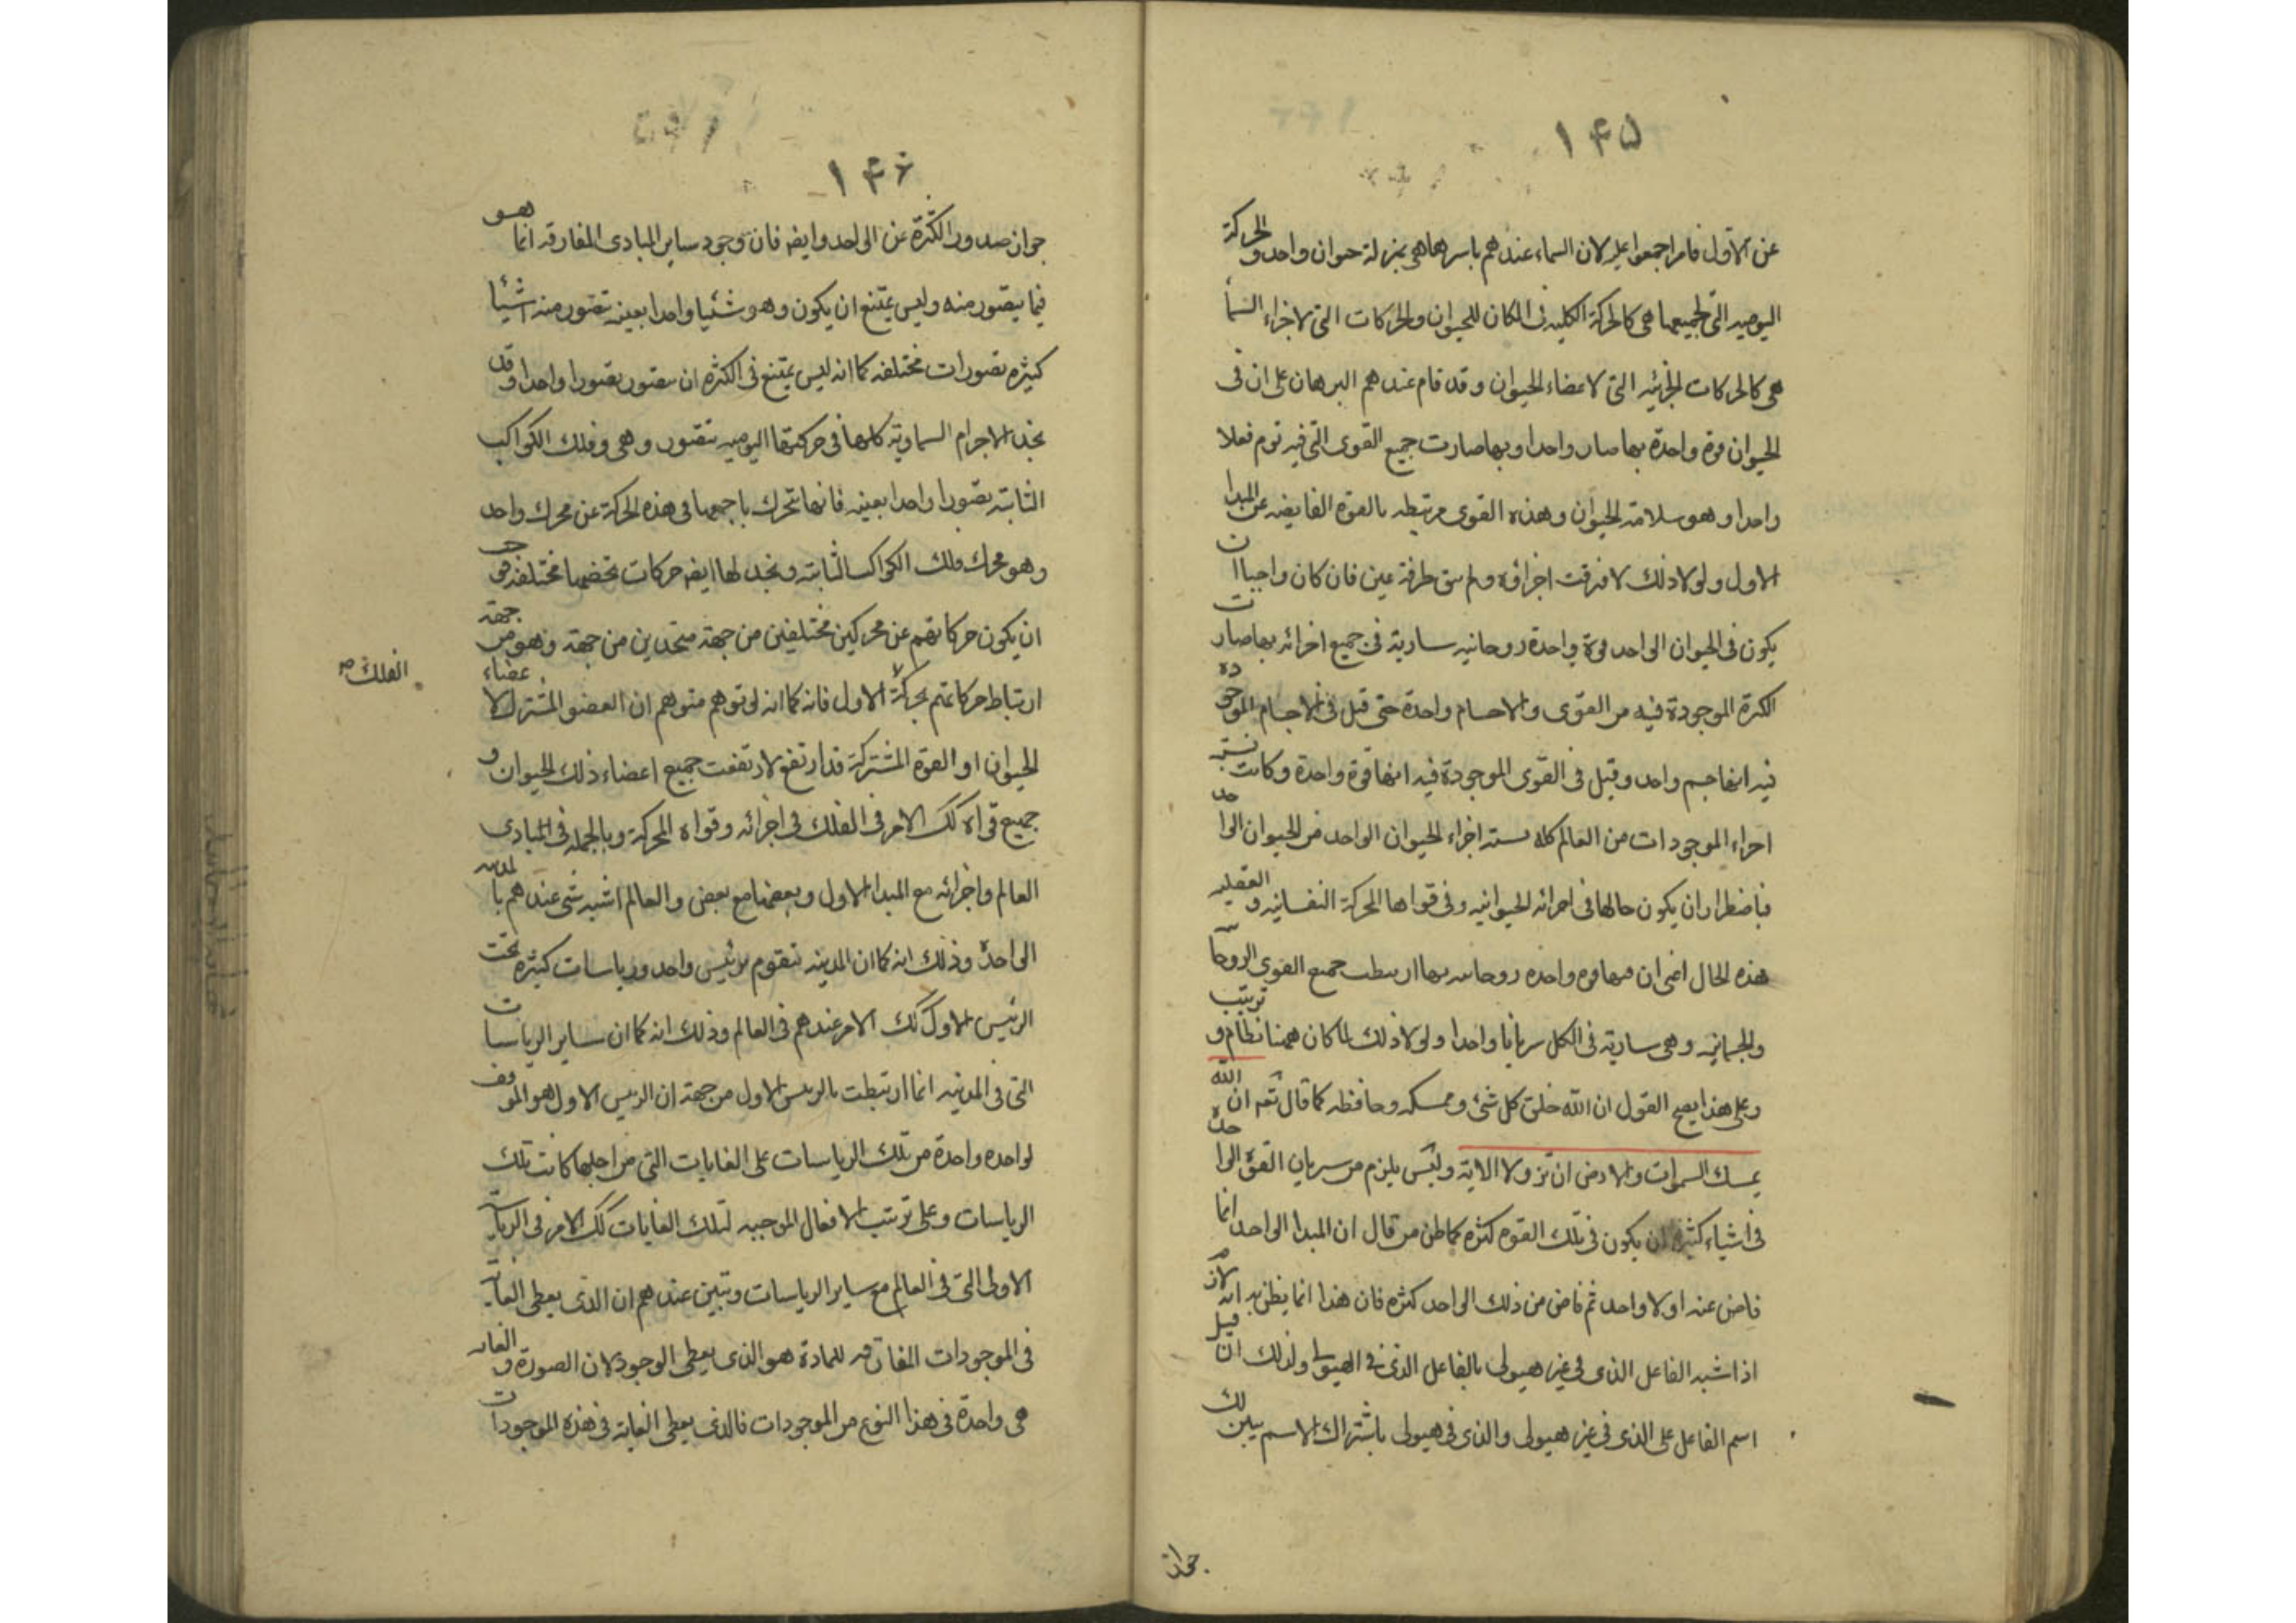 ۱۴۵
عن الاول فامر اجمعوا عليه لان السماء عندهم باسرها هي بمنزلة حيوان واحد والحركة
اليومية التي لجميعها هي كالحركة الكلية في المكان للحيوان والحركات التي لاجزاء السما
هي كالحركات الجزئية التي لاعضاء الحيوان وقد قام عندهم البرهان على ان في
الحيوان قوة واحدة بها صار واحدا وبها صارت جميع القوى التي فيه توم فعلا
واحدا وهو سلامة الحيوان وهذه القوى مرتبطه بالقوة الفايضه عن المبدا
الاول ولولا ذلك لافترقت اجزاؤه ولم يبق طرفة عين فان كان واجبا ان
يكون في الحيوان الواحد قوة واحدة روحانيه سارية في جميع اجزائه بها صارت
الكثرة الموجودة فيه من القوى والاجسام واحدة حتى قيل في الاجسام الموجودة
فيه انها جسم واحد وقيل في القوى الموجودة فيه انها قوة واحدة وكانت نسبة
اجزاء الموجودات من العالم كله نسبة اجزاء الحيوان الواحد من الحيوان الواحد
فباضطرار ان يكون حالها في اجزائه الحيوانيه وفي قواها المحركة النفسانيه والعقليه
هذه الحال اعني ان فيها قوه واحده روحانيه بها ارتبطت جميع القوى الروحانية
والجسمانيه وهي سارية في الكل سريانا واحدا ولولا ذلك لما كان ههنا نظام وترتيب
وعلى هذا يصح القول ان الله خلق كل شئ وممسكه وحافظه كما قال تعه ان الله
يمسك السموات والارض ان تزولا الاية وليس يلزم من سريان القوة الواحدة
في اشياء كثيره ان يكون في تلك القوه كثره كما ظن من قال ان المبدا الواحد انما
فاض عنه اولا واحد ثم فاض من ذلك الواحد كثره فان هذا انما يظن به انه لازم
اذا شبه الفاعل الذي في غير هيولى بالفاعل الذي في الهيولى ولذلك ان قيل
اسم الفاعل على الذي في غير هيولى والذي في هيولى باشتراك الاسم يبين لك
جواز
۱۴۶
جواز صدور الكثرة عن الواحد وايضه فان وجود ساير المبادى المفارقه انما هو
فيما يتصور منه وليس يمتنع ان يكون وهو شئيا واحدا بعينه تتصور منه اشيا
كثيره تصورات مختلفه كما انه ليس يمتنع في الكثره ان يتصور تصورا واحدا وقد
نجد الاجرام السماوية كلها في حركتها اليوميه تتصور وهي وفلك الكواكب
الثابته تصورا واحدا بعينه فانها تتحرك باجمعها في هذه الحركة عن محرك واحد
وهو محرك فلك الكواكب الثابته ونجد لها ايضه حركات تخصها مختلفه فوجب
ان يكون حركاتهم عن محركين مختلفين من جهة متحدين من جهة وهو من جهة
ارتباط حركاتهم بحركة الاول فانه كما انه لو توهم متوهم ان العضو المشترك لاعضاء
الفلك صح
الحيوان او القوة المشتركة قد ارتفع لارتفعت جميع اعضاء ذلك الحيوان و
جميع قواه كك الامر في الفلك في اجزائه وقواه المحركة وبالجملة في المبادى
العالم واجزائه مع المبدا الاول وبعضها مع بعض والعالم اشبه شئ عندهم بالمدينه
الواحدة وذلك انه كما ان المدينه تتقوم برئيس واحد ورياسات كثيره تحت
الرئيس الاول كك الامر عندهم في العالم وذلك انه كما ان ساير الرياسات
التي في المدينه انما ارتبطت بالرئيس الاول من جهة ان الرئيس الاول هو الموقف
لواحده واحدة من تلك الرياسات على الغايات التي من اجلها كانت تلك
الرياسات وعلى ترتيب الافعال الموجبه لتلك الغايات كك الامر في الرياسة
الاولى التي في العالم مع ساير الرياسات وتبين عندهم ان الذي يعطى الغاية
في الموجودات المفارقه للمادة هو الذي يعطى الوجود لان الصورة والغايه
هي واحدة في هذا النوع من الموجودات فالذي يعطى الغاية في هذه الموجودات